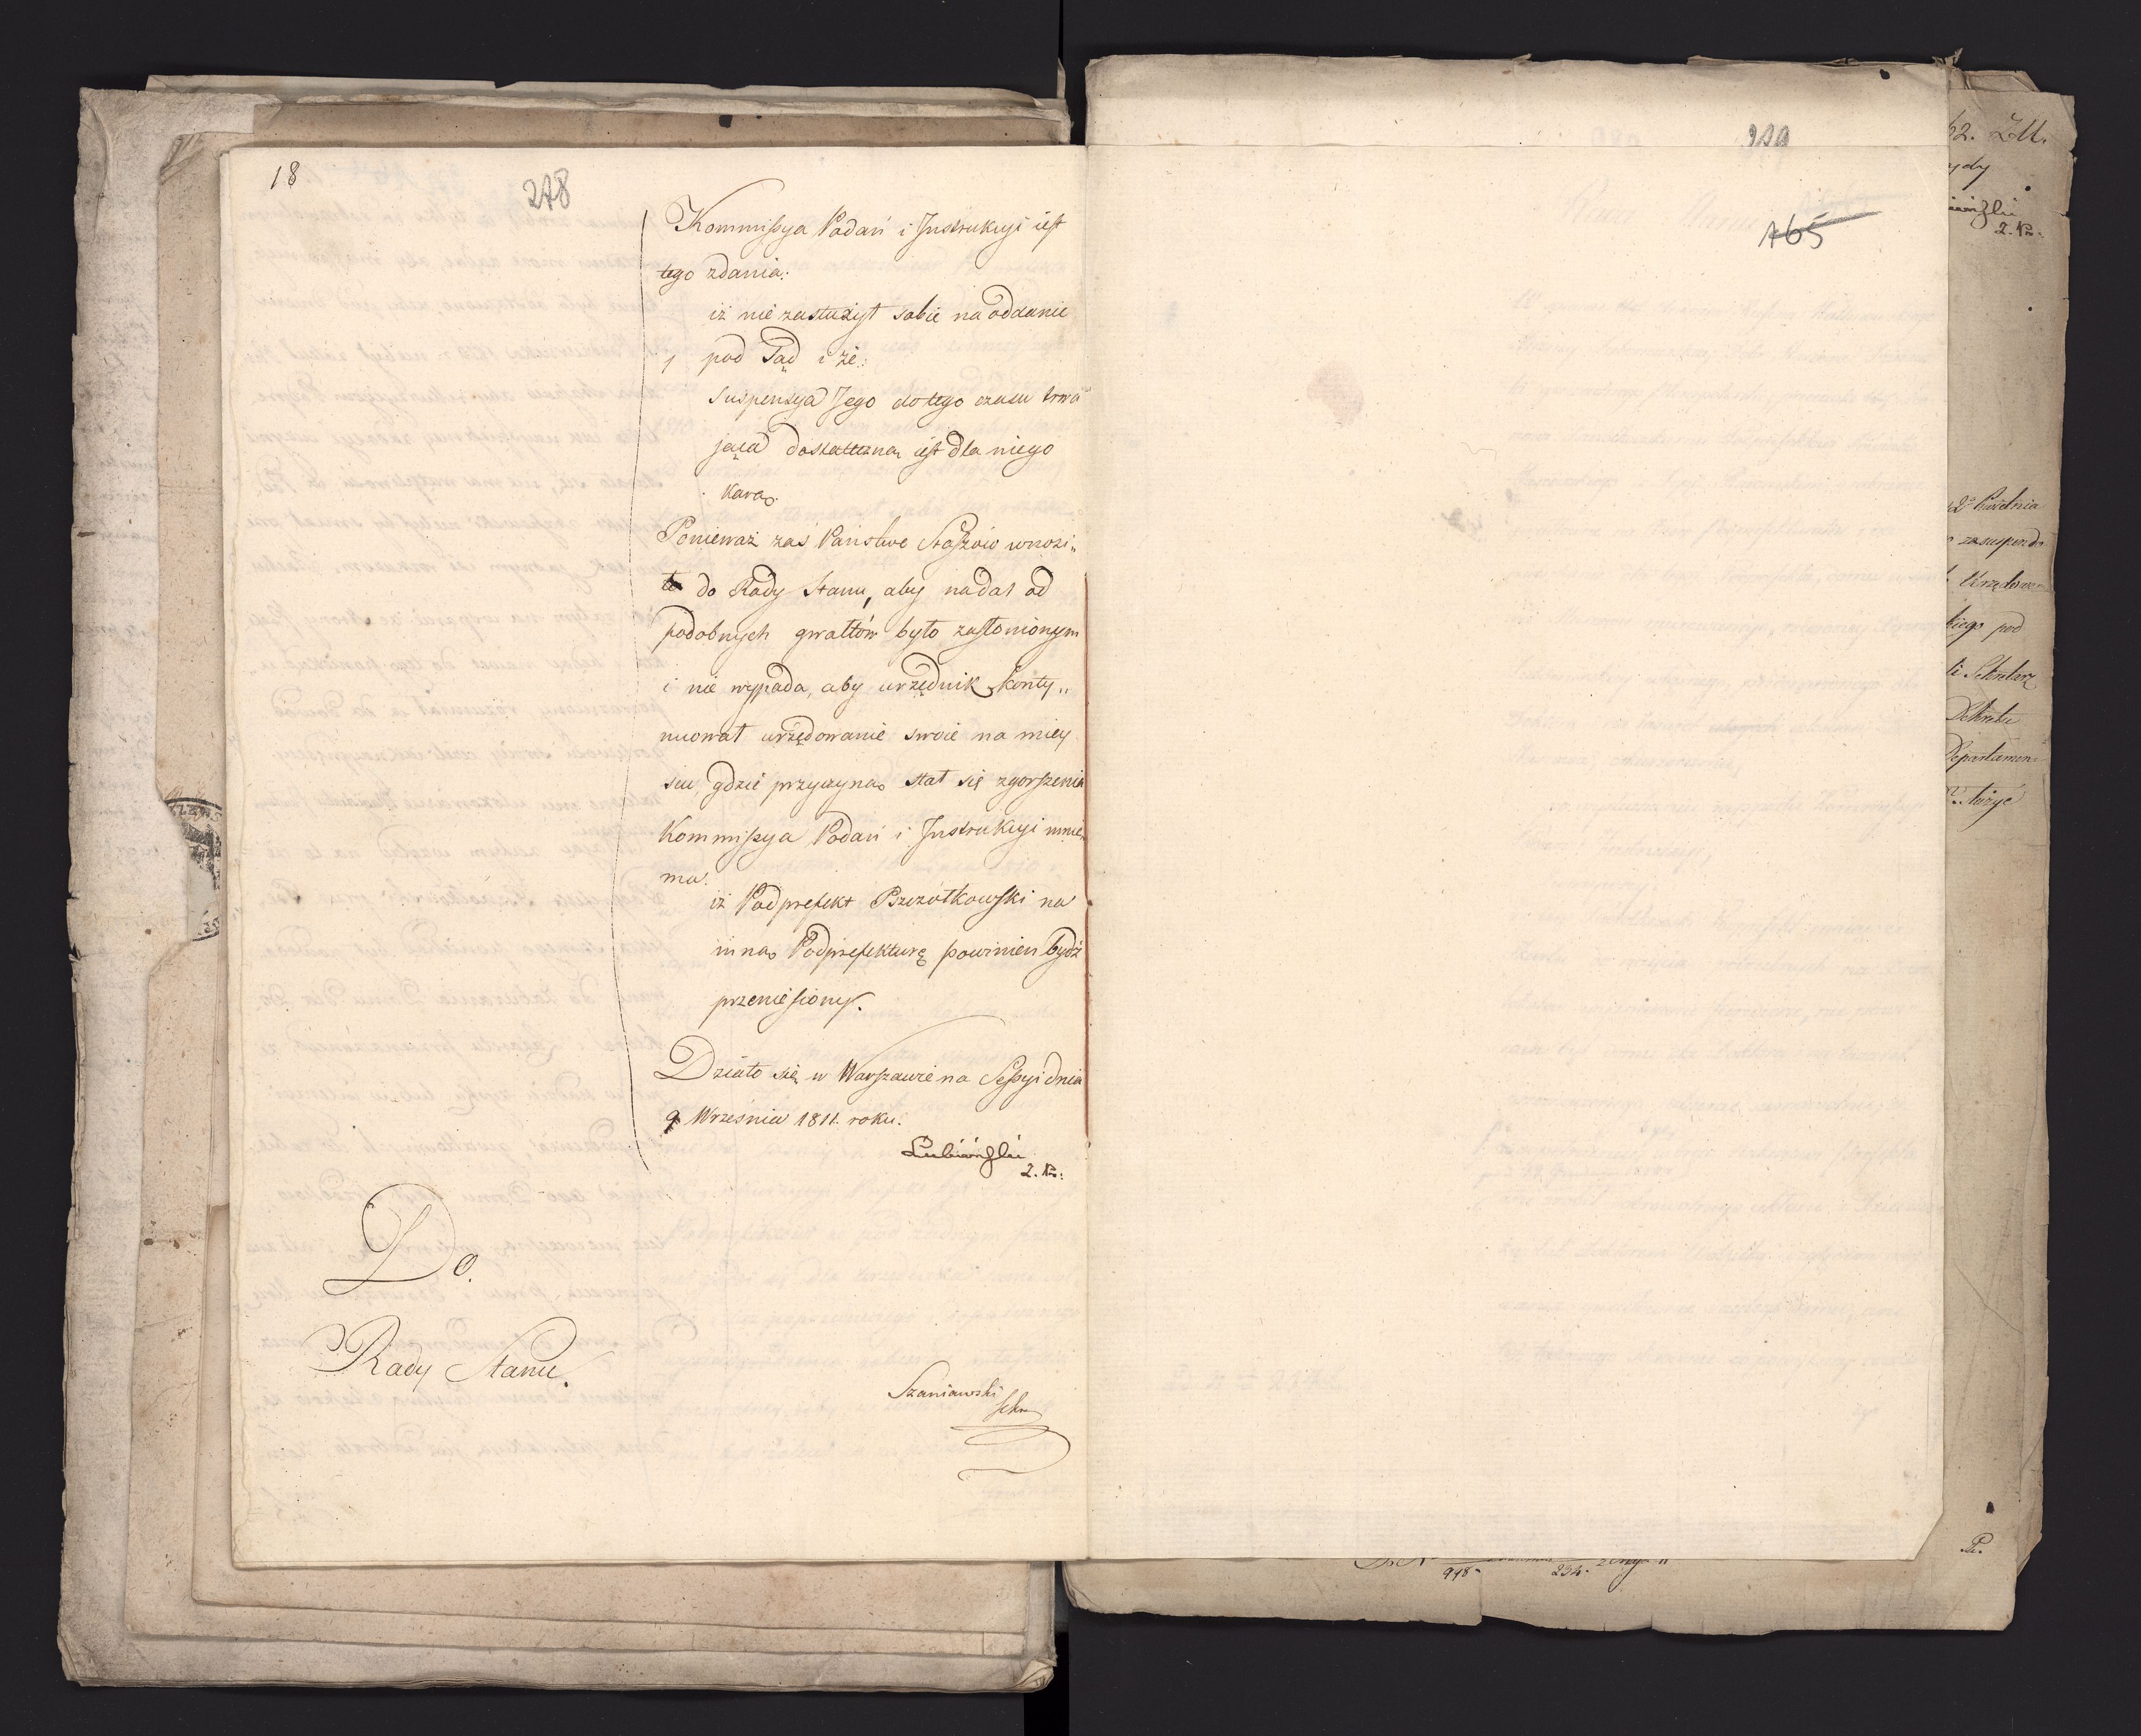 18
278
Kommissya Podań i Instrukcyi iest
tego zdania:
iż nie zasłużył sobie na oddanie
pod Sąd i że:
suspensya Jego dotego czasu trwa
jąca dostateczną iest dla niego
karą.
Ponieważ zaś Państwo Staszów wnosi„
to do Rady Stanu, aby nadal od
podobnych gwałtów było zasłonionym
i nie wypada, aby urzędnik konty„
nuował urzędowanie swoie na miey
scu, gdzie przyczyną stał się zgorszenia
Kommissya Podań i Instrukcyi mnie„
ma:
iż Podprefekt Pszczółkowski na
inną Podprefekturę powinien bydź
przeniesiony.
Działo się w Warszawie na Sessyi dnia
9 Września 1811. roku.
Lubiński
Do
Rady Stanu.
Szaniawski
Sekr
165
62. ZU.
2° Kwietnia
zasuspendo
Urzędowa
kiego pod
li Sekretarz
Dekretu
Departamen
łożyć
Pr.
978. 234.